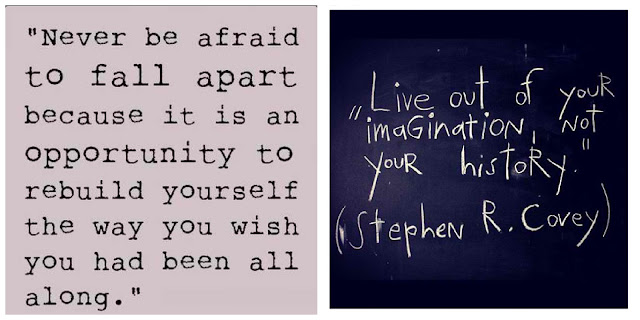 "Never be afraid
to fall apart
because it is an
opportunity to
rebuild yourself
the way you wish
you had been all
along."
„Live out of your
imagination, not
your history."
(Stephen R. Covey)